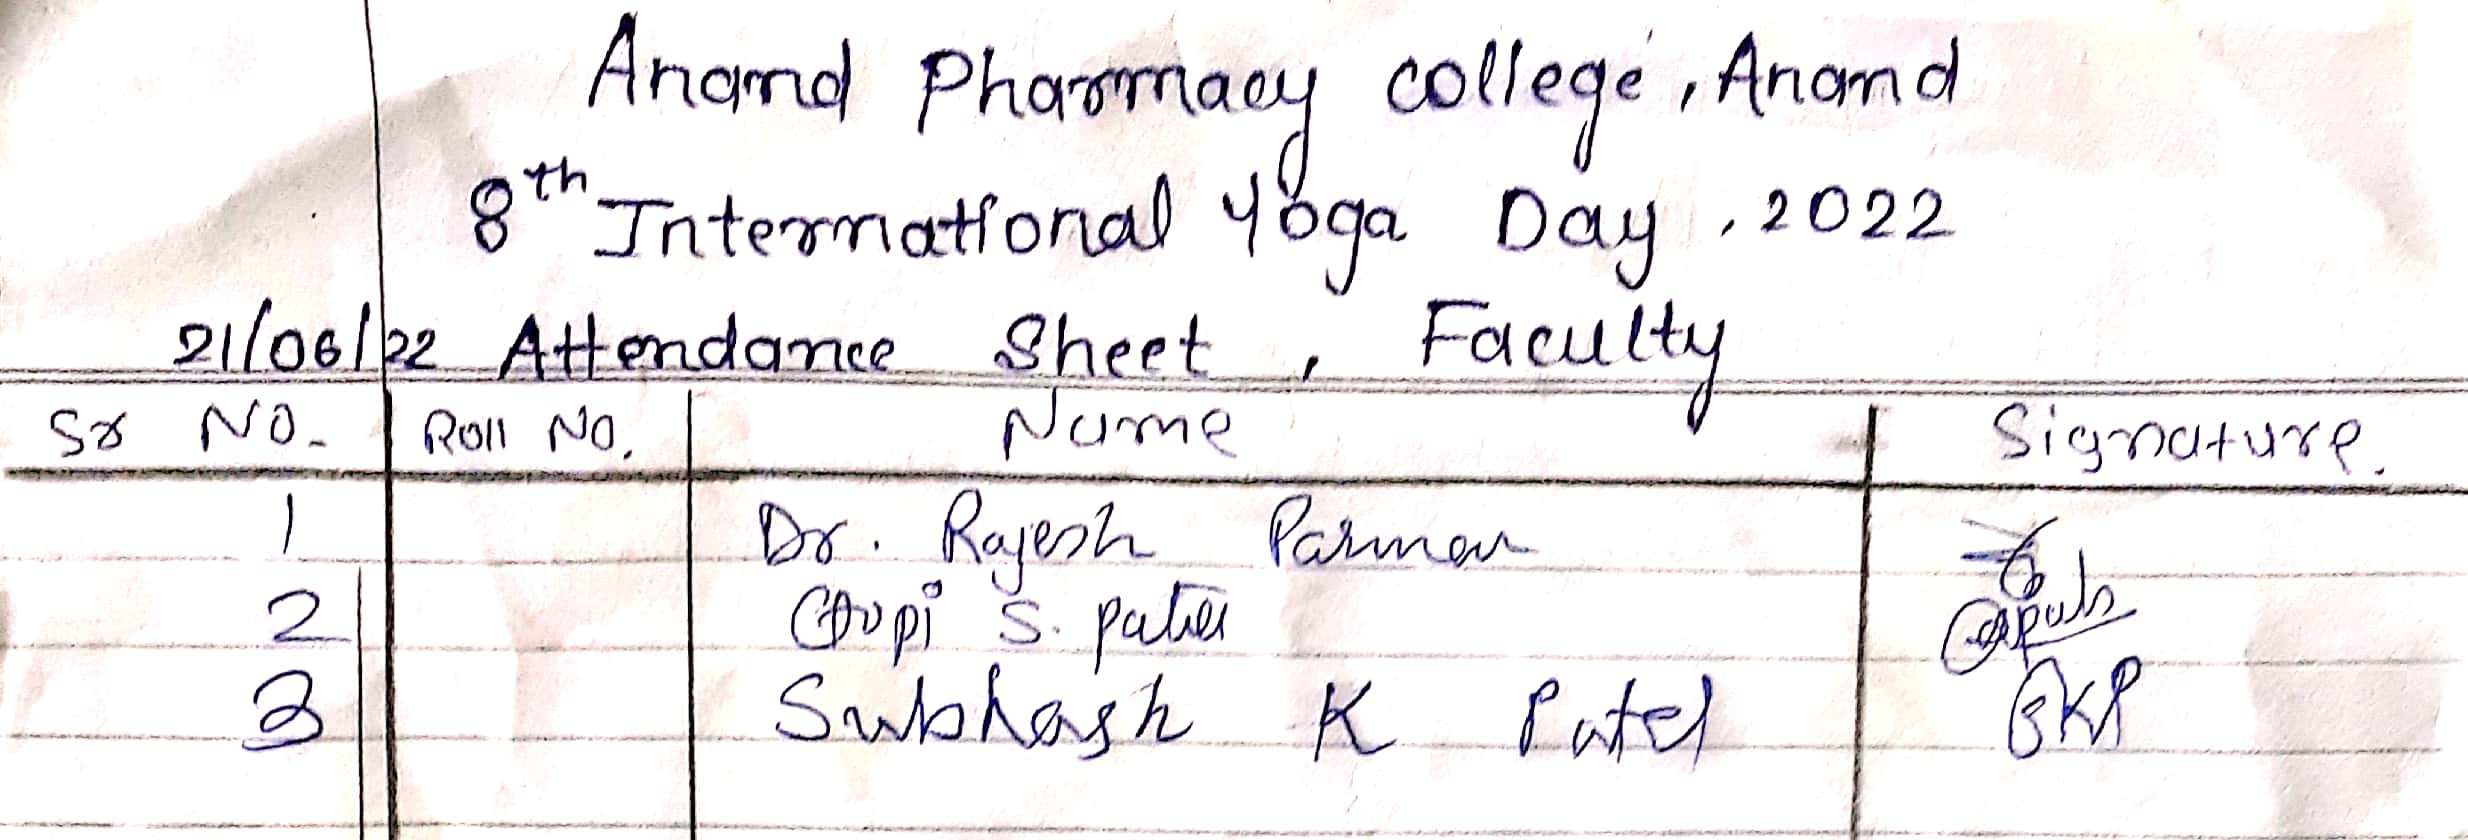 Anand Pharmacy college, Anand
8th International Yoga Day, 2022
21/06/22 Attendance Sheet, Faculty
Sr No. Roll No. Name Signature.
1 Dr. Rajesh Parmar
2 Gopi S. Patel
3 Subhash K Patel SKP